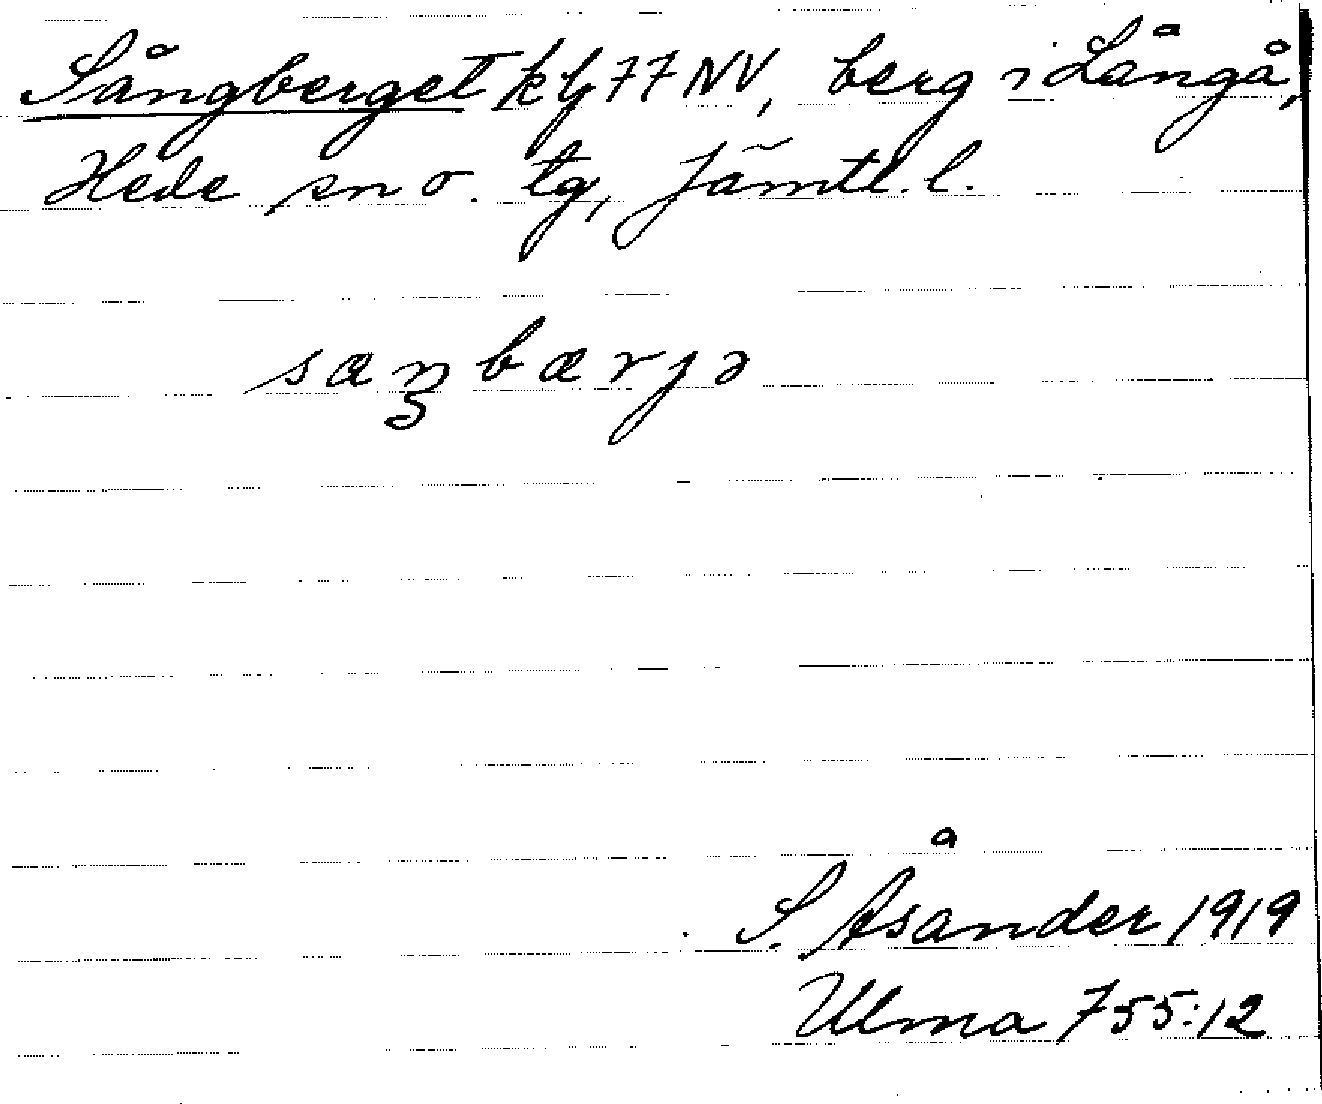 Sångberget kfg 77 NV, berg i Långå,
Hede sn o. tg, Jämtl. l.
sæŋbærjə
S. Åsander 1919
Ulma 755:12